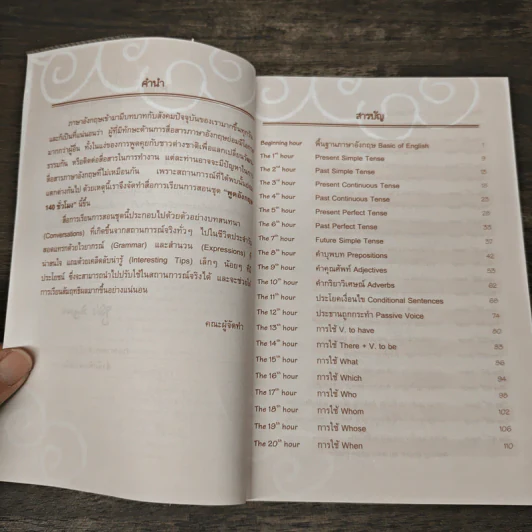 คำนำ
ภาษาอังกฤษเข้ามามีบทบาทกับสังคมปัจจุบันของเรามากขึ้นทุกวัน
และก็เป็นที่แน่นอนว่า ผู้ที่มีทักษะด้านการสื่อสารภาษาอังกฤษย่อมมีโอกาส
มากกว่าผู้อื่น ทั้งในแง่ของการพูดคุยกับชาวต่างชาติเพื่อแลกเปลี่ยนวัฒน
ธรรมกัน หรือติดต่อสื่อสารในการทำงาน แต่ละท่านอาจจะมีปัญหาในการ
สื่อสารภาษาอังกฤษที่ไม่เหมือนกัน เพราะสถานการณ์ที่ได้พบนั้น
แตกต่างกันไป ด้วยเหตุนี้เราจึงจัดทำสื่อการเรียนการสอนชุด "พูดอังกฤษ
140 ชั่วโมง" นี้ขึ้น
สื่อการเรียนการสอนชุดนี้ประกอบไปด้วยตัวอย่างบทสนทนา
(Conversations) ที่เกิดขึ้นจากสถานการณ์จริงทั่วๆ ไปในชีวิตประจำวัน
สอดแทรกด้วยไวยากรณ์ (Grammar) และสำนวน (Expressions) ที่
น่าสนใจ แถมด้วยเคล็ดลับน่ารู้ (Interesting Tips) เล็กๆ น้อยๆ ที่มี
ประโยชน์ ซึ่งจะสามารถนำไปปรับใช้ในสถานการณ์จริงได้ และจะช่วยให้
การเรียนสัมฤทธิผลมากขึ้นอย่างแน่นอน
คณะผู้จัดทำ
สารบัญ
Beginning hour พื้นฐานภาษาอังกฤษ Basic of English 1
The 1st hour Present Simple Tense
The 2nd hour Past Simple Tense
The 3rd hour Present Continuous Tense
The 4th hour Past Continuous Tense 23
The 5th hour Present Perfect Tense 28
The 6th hour Past Perfect Tense 33
The 7th hour Future Simple Tense 37
The 8th hour คำบุพบท Prepositions 42
The 9th hour คำคุณศัพท์ Adjectives 55
The 10th hour คำกริยาวิเศษณ์ Adverbs 62
The 11th hour ประโยคเงื่อนไข Conditional Sentences 68
The 12th hour ประธานถูกกระทำ Passive Voice 74
The 13th hour การใช้ V. to have 80
The 14th hour การใช้ There + V. to be 85
The 15th hour การใช้ What
The 16th hour การใช้ Which 94
The 17th hour การใช้ Who 98
The 18th hour การใช้ Whom 102
The 19th hour การใช้ Whose 106
The 20th hour การใช้ When 110